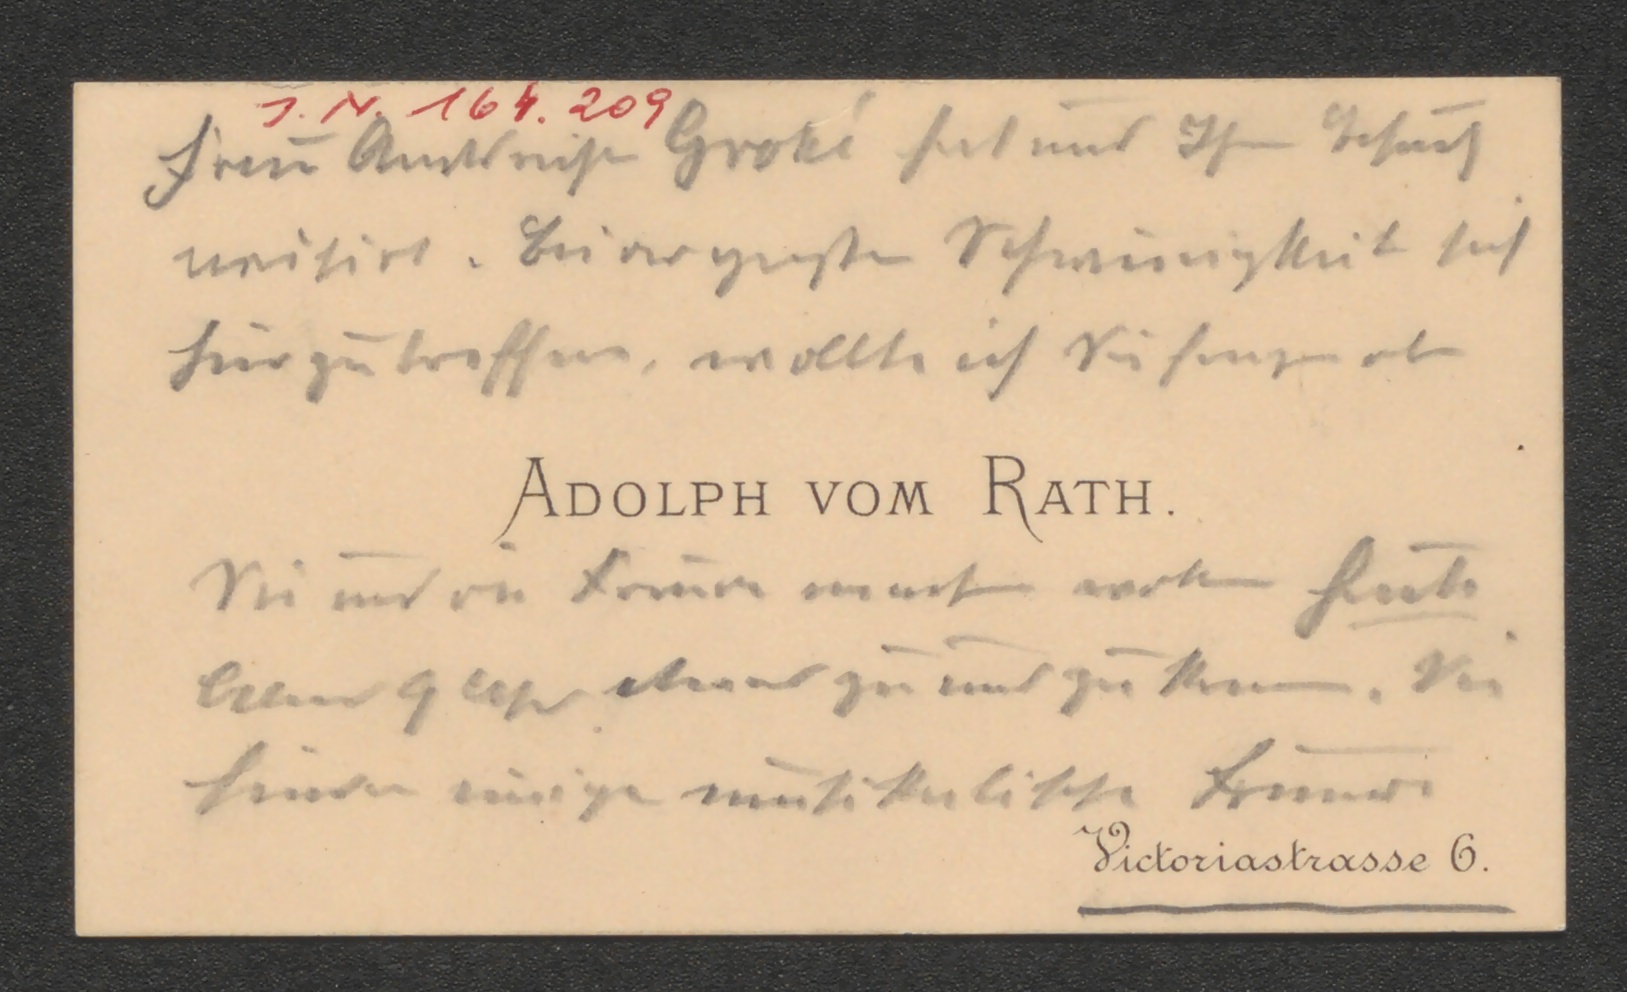 J. N. 164.209
Frau Amtsrichter Groké hat uns Ihren Besuch
avisirt. Bei der großen Schwierigkeit sich
hier zu treffen, wollte ich Sie fragen ob
ADOLPH VOM RATH.
Sie uns die Freude machen wollen heute
Abend 9 Uhr etwas zu uns zu kommen. Sie
finden einige musikalische Freunde
Victoriastrasse 6.